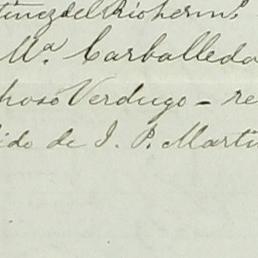 tinez del Rio herm.s
Ma. Carballeda
hoso Verdugo - re
ido de J. P. Marti